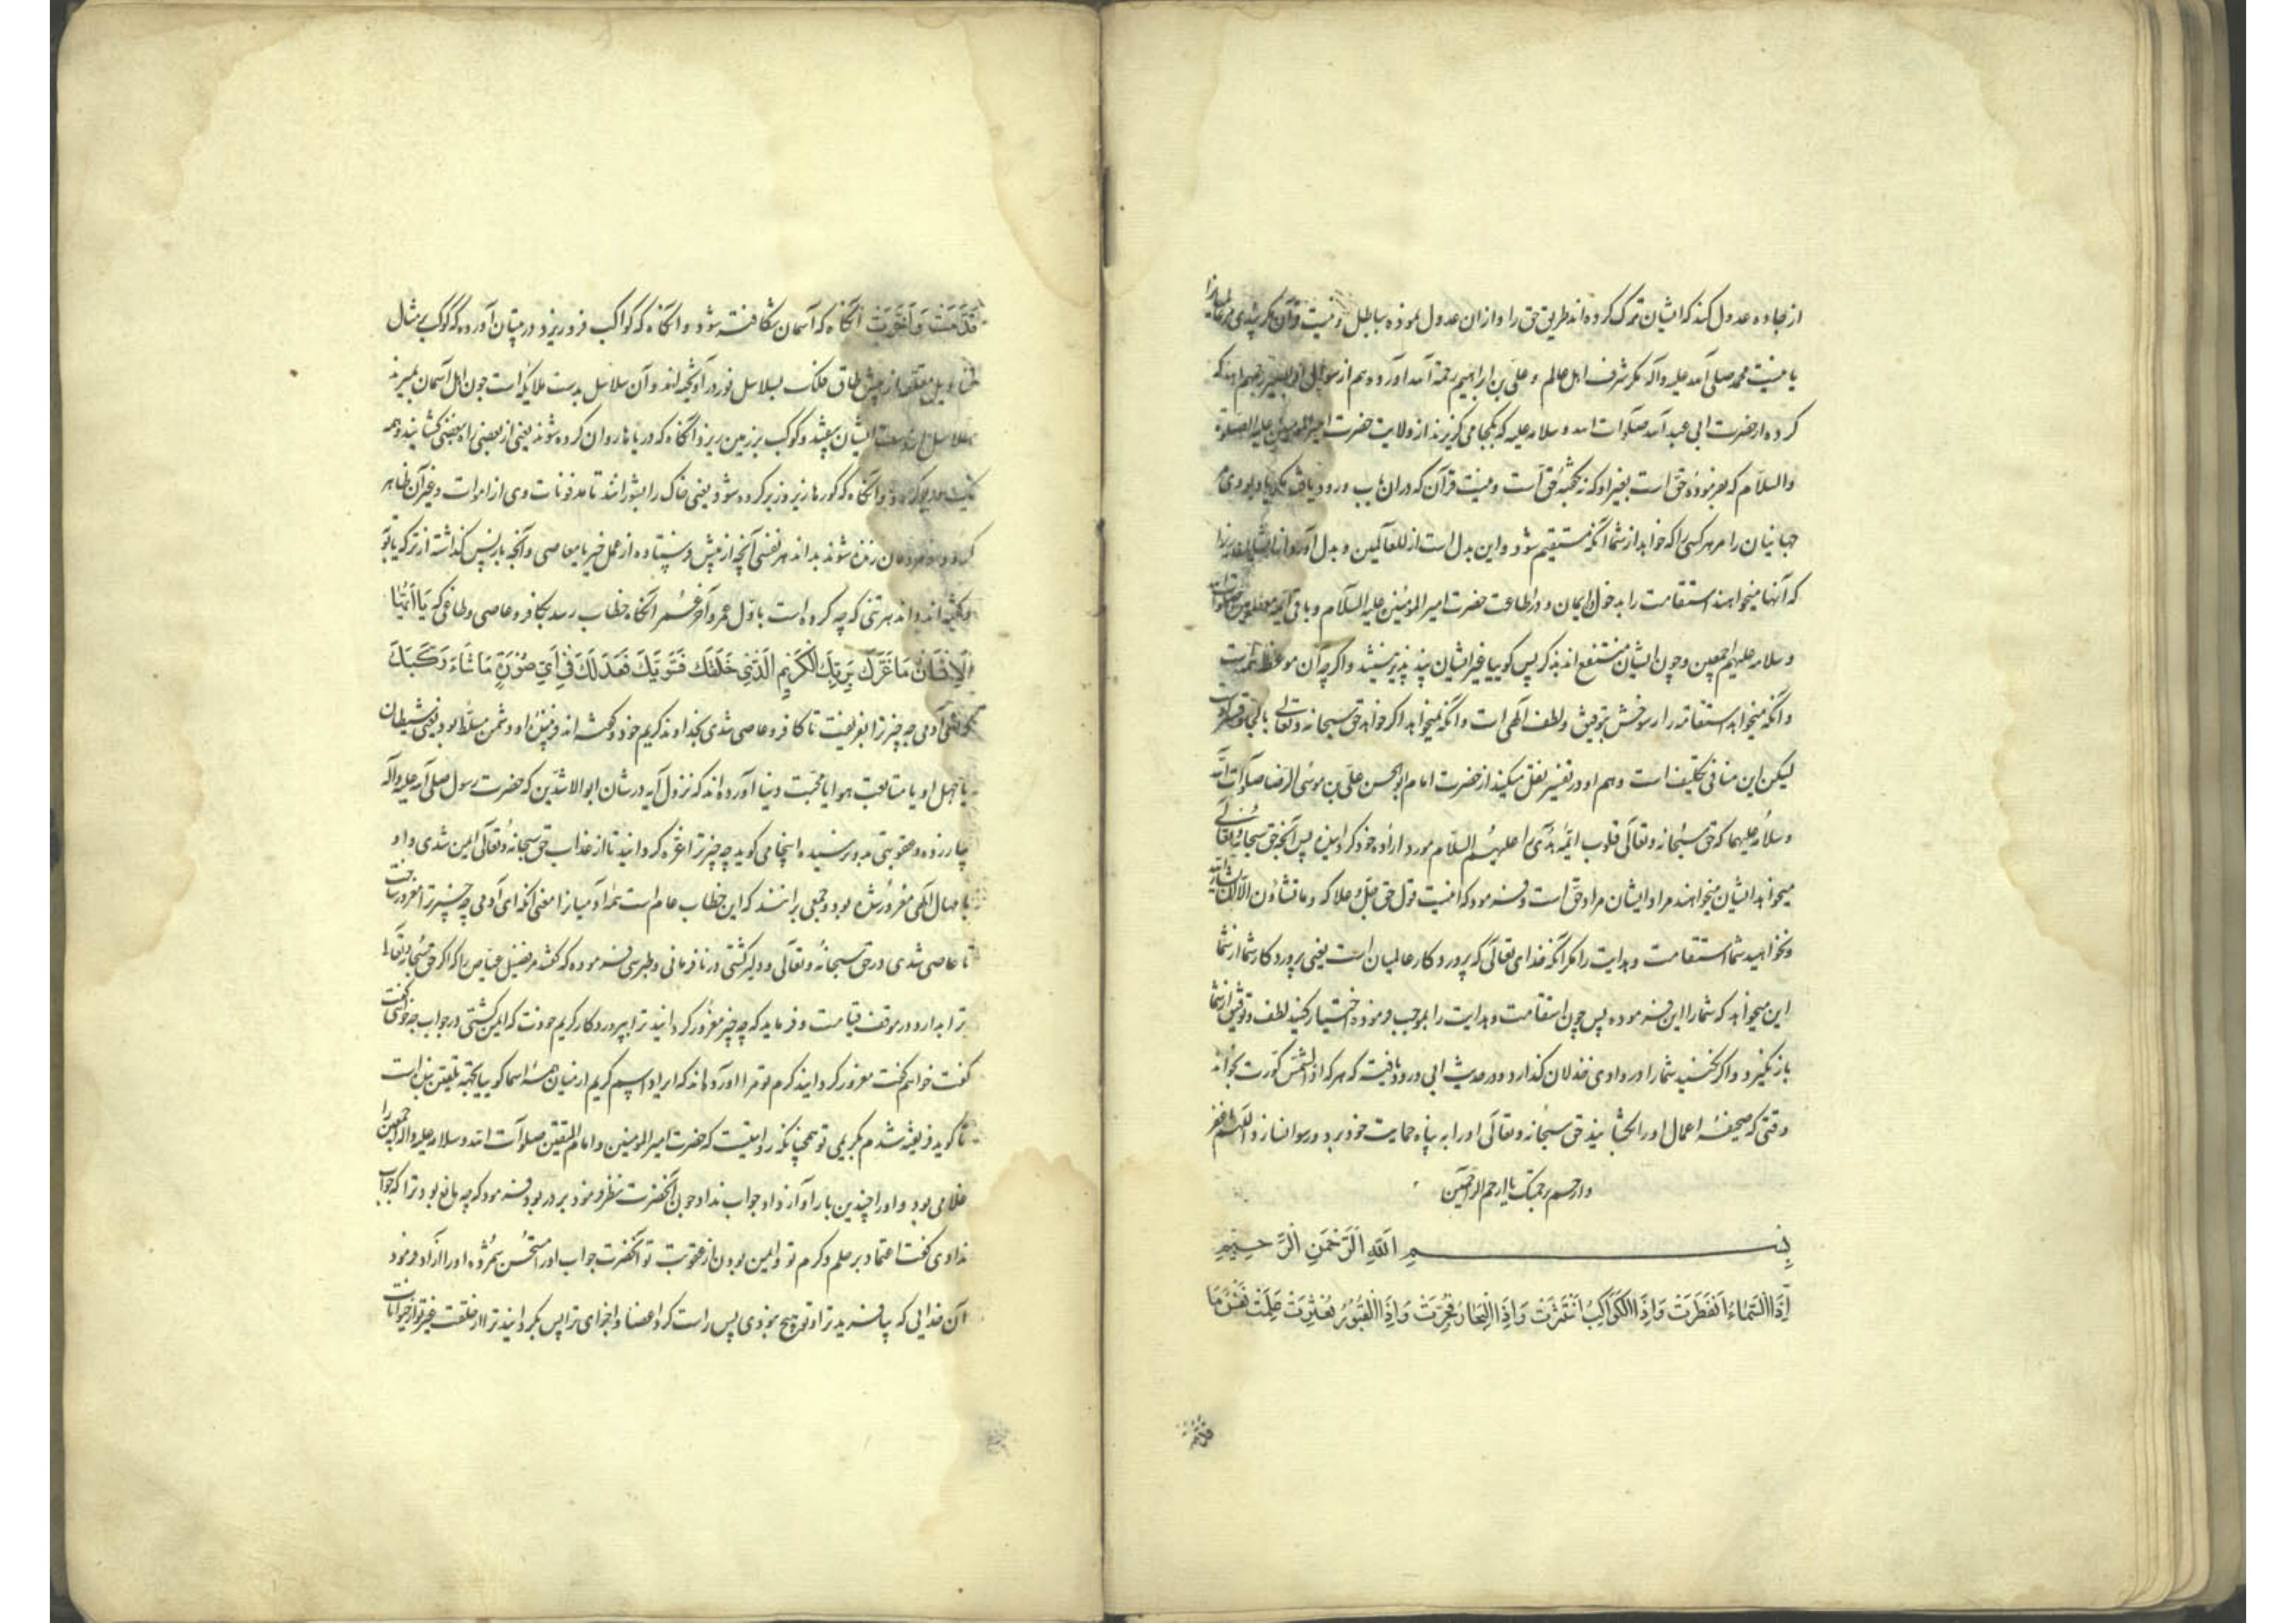 از جاده عدول کند که ایشان ترک کرده‌اند طریق حق را و از ان عدول نموده بباطل و نیست قرآن مگر پندی مر عالمیانرا
یا نیست محمد صلی الله علیه وآله مگر شرف اهل عالم و علی بن ابراهیم رحمة الله آورده هم از سوال ابو بصیر
کرده از حضرت ابی عبد الله صلوات الله و سلامه علیه که بکجا می‌کریزند از ولایت حضرت امیر المومنین علیه الصلوة
والسلام که بفرموده حق است بغیر او که نه کخته حق است و نیست قرآن که در ان باب ورود یافته مگر
جهانیان را مر هر کسی را که خواهد از شما آنکه مستقیم شود و این بدل است از للعالمین و بدل آورد
که آنها میخواهند استقامت را به دخول ایمان و در اطاعت حضرت امیر المومنین علیه السلام و باقی ائمه معصومین صلوات الله
و سلامه علیهم اجمعین و چون ایشان منتفع اند بذکر پس کوییا غیر ایشان پند پذیر نیستند و اکرچه آن موعظه
و آنکه میخواهد استقامة را رسوخش بتوفیق و لطف الهی است و آنکه نمیخواهد اکر خواهد حق سبحانه و تعالی بالجا و قسر
لیکن این منافی تکلیف است و هم او در تفسیر نقل میکند از حضرت امام ابو الحسن علی بن موسی الرضا صلوات الله
و سلامه علیهما که حق سبحانه و تعالی قلوب ائمه هدی را علیهم السلام مورد اراده خود کردانیده پس آنچه حق سبحانه و تعالی
میخواهد ایشان میخواهند مراد ایشان مراد حق است و فرموده که اینست قول حق جل و علا که و ما تشاؤن الا ان یشاء الله
و نخواهید شما استقامت و هدایت را مکر آنکه خدای تعالی که پروردکار عالمیان است یعنی پروردکار شما از شما
این میخواهد که شما را این فرموده پس چون استقامت و هدایت را بموجب فرموده اختیار کنید لطف و توفیق از شما
باز نکیرد و اکر نکنید شما را در وادی خذلان کذارد و در حدیث ابی ورود یافته که هر که اذا الشمس کورت بخواند
وقتی که صحیفه اعمال او را بکشایند حق سبحانه و تعالی او را به پناه حمایت خود برد و رسوا نسازد اللهم اغفر
وارحم برحمتک یا ارحم الراحمین
بِسْمِ اللهِ الرَّحْمَنِ الرَّحِیمِ
اِذَا السَّمَاءُ انْفَطَرَتْ وَاِذَا الْکَوَاکِبُ انْتَثَرَتْ وَاِذَا الْبِحَارُ فُجِّرَتْ وَاِذَا الْقُبُورُ بُعْثِرَتْ عَلِمَتْ نَفْسٌ مَا
قَدَّمَتْ وَاَخَّرَتْ آنکاه که آسمان شکافته شود و آنکاه که کواکب فرو ریزد در تبیان آورده که کوکب بمثال
قنادیل معلقه از پیش طاق فلک بسلاسل نور در آویخته‌اند و آن سلاسل بدست ملایکه است چون اهل آسمان بمیرند
سلاسل از دست ایشان بیفتد و کوکب بر زمین ریزد و آنکاه که دریاها روان کرده شوند یعنی از بعضی راه ببعضی کشایند و همه
یک دریا کردد و آنکاه که کورها زیر و زبر کرده شود یعنی خاک را بشورانند تا مدفونات وی از اموات و غیر آن ظاهر
کردد و مردمان زنده شوند بداند هر نفسی آنچه از پیش فرستاده از عمل خیر یا معاصی و آنچه باز پس کذاشته از ترکه یا
بداند هر تنی که چه کرده است باول عمر و آخر عمر آنکاه خطاب رسد بکافر و عاصی و طاغی که یَا اَیُّهَا
الْاِنْسَانُ مَا غَرَّکَ بِرَبِّکَ الْکَرِیمِ الَّذِی خَلَقَکَ فَسَوَّیکَ فَعَدَلَکَ فِی اَیِّ صُورَةٍ مَا شَاءَ رَکَّبَکَ
آدمی چه چیز ترا بفریفت تا کافر و عاصی شدی بخداوند کریم خود و کفته‌اند فریفته او دشمن مسلط بود یعنی شیطان
یا جهل او یا متابعت هوا یا محبت دنیا آورده‌اند که نزول آیه در شان ابو الاشدین که حضرت رسول صلی الله علیه وآله
را زده و عقوبتی بدو نرسیده اینجا می‌کوید چه چیز ترا غره کردانید تا از عذاب حق سبحانه و تعالی ایمن شدی و او
بامهال الهی مغرور شده بود و جمعی برانند که این خطاب عام است تمام آدمیانرا معنی آنکه ای آدمی چه چیز ترا مغرور ساخت
تا عاصی شدی در حق سبحانه و تعالی و دلیر کشتی در نافرمانی و طبرسی فرموده که کفتند مر فضیل عیاض را که اکر حق سبحانه و تعالی
ترا بدارد در موقف قیامت و فرماید که چه چیز مغرور کردانید ترا بپروردکار کریم خودت که ایمن کشتی در جواب چه خواهی کفت
کفت خواهم کفت مغرور کردانید کرم تو مرا و آورده‌اند که ایراد اسم کریم از میان همه اسما کوییا بجهة تلقین بنده است
تا کوید فریفته شدم بکریمی تو همچنانکه روایتست که حضرت امیر المومنین و امام المتقین صلوات الله و سلامه علیه و آله اجمعین را
غلامی بود و او را چندین بار آواز داد جواب نداد چون آنحضرت نظر فرمود بر در بود فرمود که چه مانع بود ترا که جواب
ندادی کفت اعتماد بر حلم و کرم تو و ایمن بودن از عقوبت تو آنحضرت جواب او را مستحسن شمرده او را آزاد فرمود
آن خدایی که بیافرید ترا و تو هیچ نبودی پس راست کرد اعضا و اجزای ترا پس بکردانید ترا از خلقت غیر تو از حیوانات